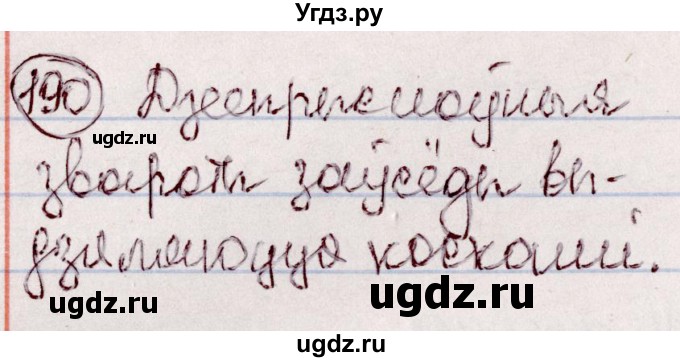 Угдз.ру
190 Дзеепрыслоўныя
ugdz.ru
звароты заўсёды вы-
дзяляюцца коскамі.
ugdz.ru
ugdz.ru
ugdz.ru